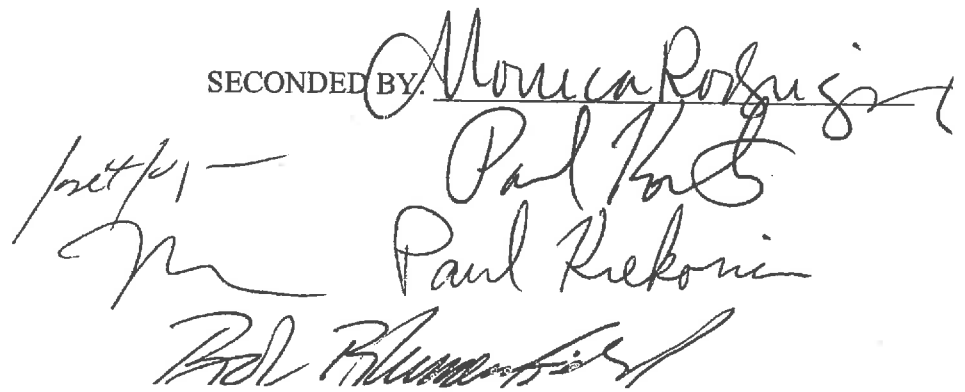 SECONDED BY: Monica Rodriguez
Paul Koretz
Paul Krekorian
Bob Blumenfield